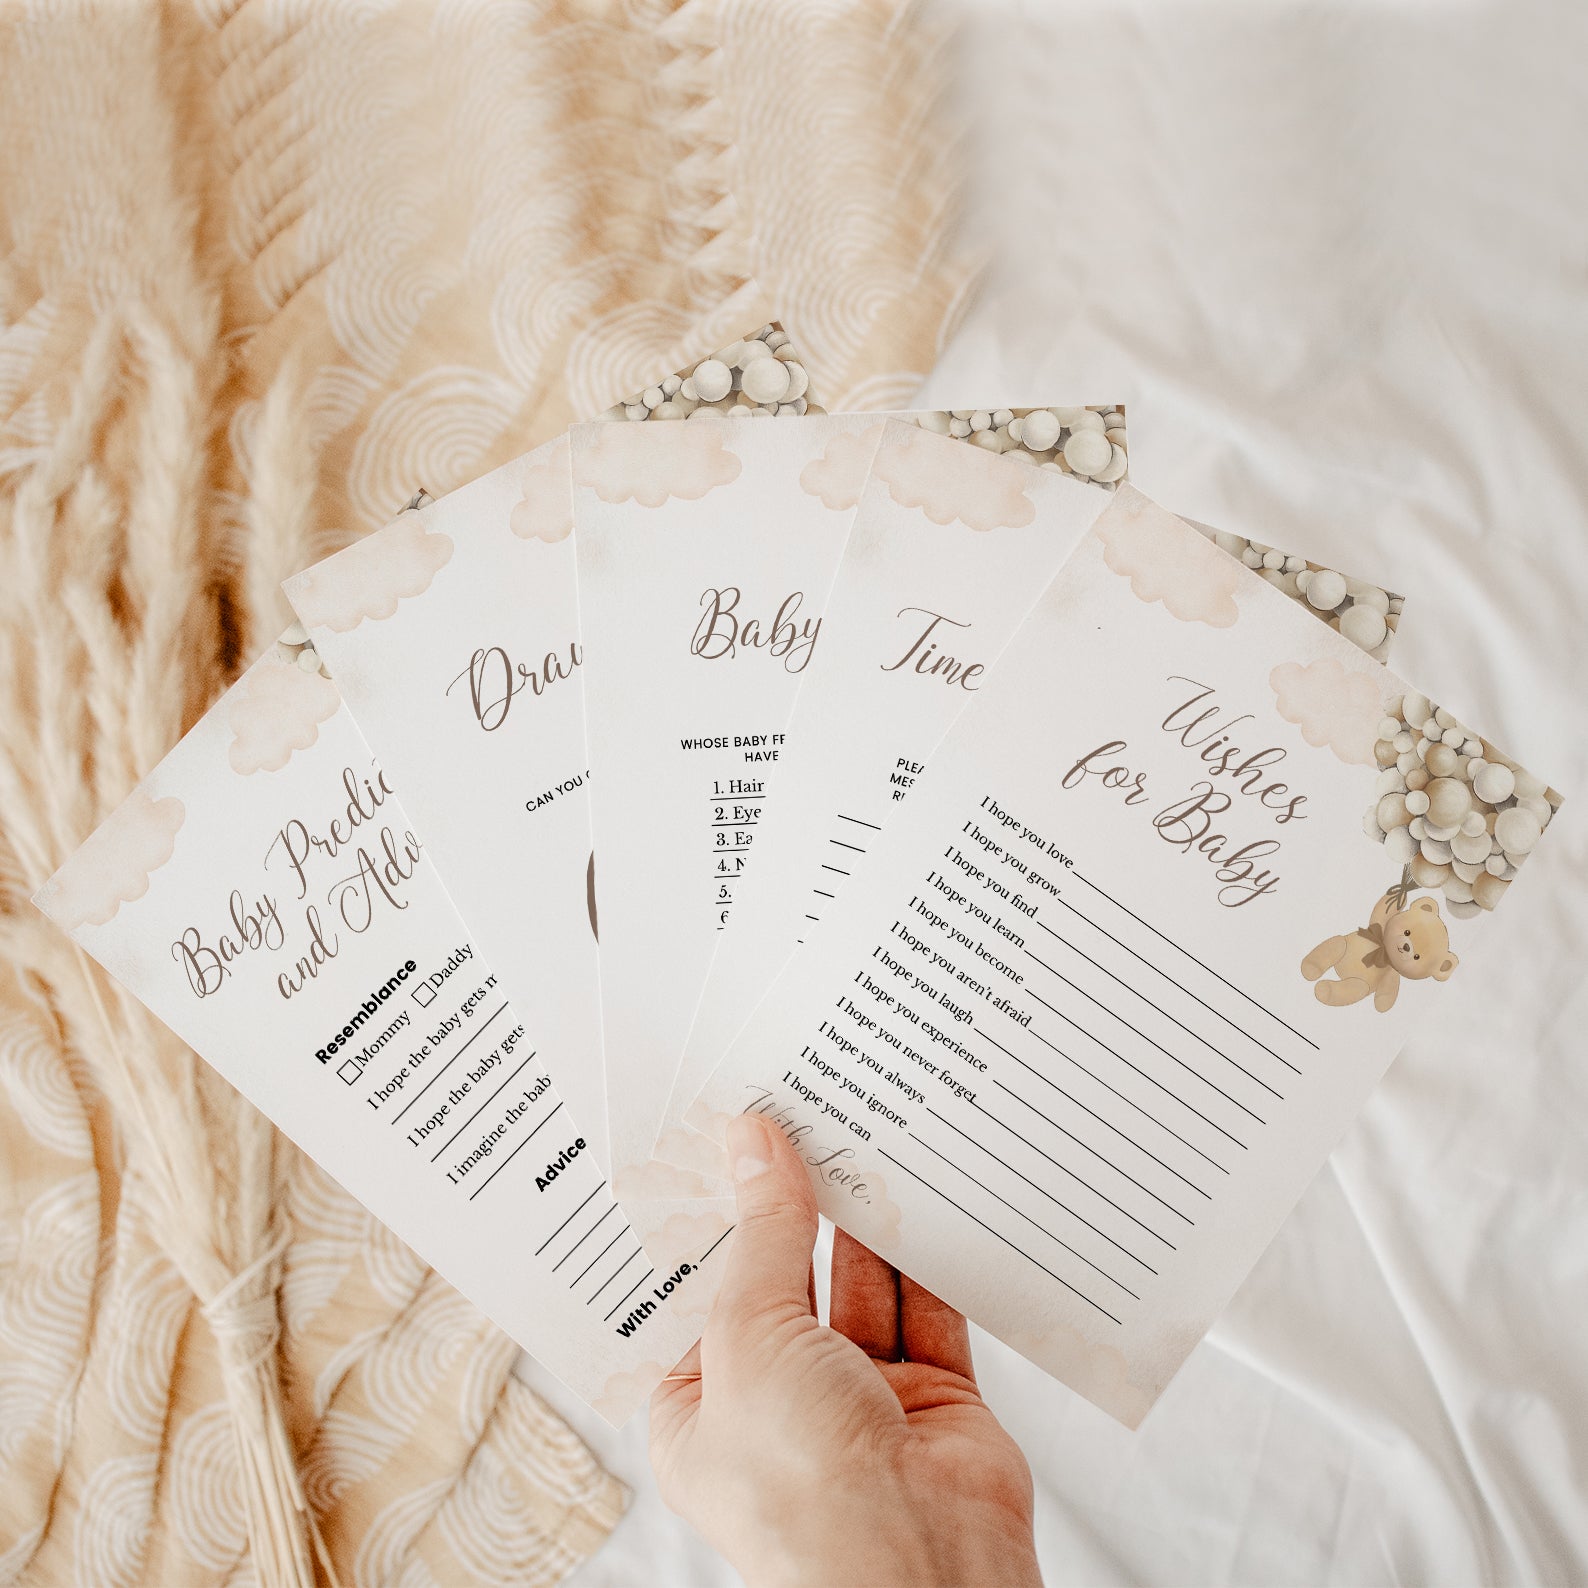 Baby Predic
and Adv
Resemblance
Mommy Daddy
I hope the baby gets m
I hope the baby gets
I imagine the bab
Advice
With Love,
Draw
CAN YOU
Baby
WHOSE BABY FE
HAVE
1. Hair
2. Eye
3. Ea
4. N
5.
6
Time
PLEA
MES
RI
Wishes
for Baby
I hope you love
I hope you grow
I hope you find
I hope you learn
I hope you become
I hope you aren't afraid
I hope you laugh
I hope you experience
I hope you never forget
I hope you always
I hope you ignore
I hope you can
With Love,